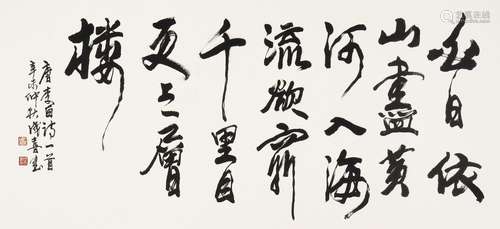 白日依
山盡黄
河入海
流欲窮
千里目
更上一層
樓
唐李白詩一首
辛未仲秋成喜書